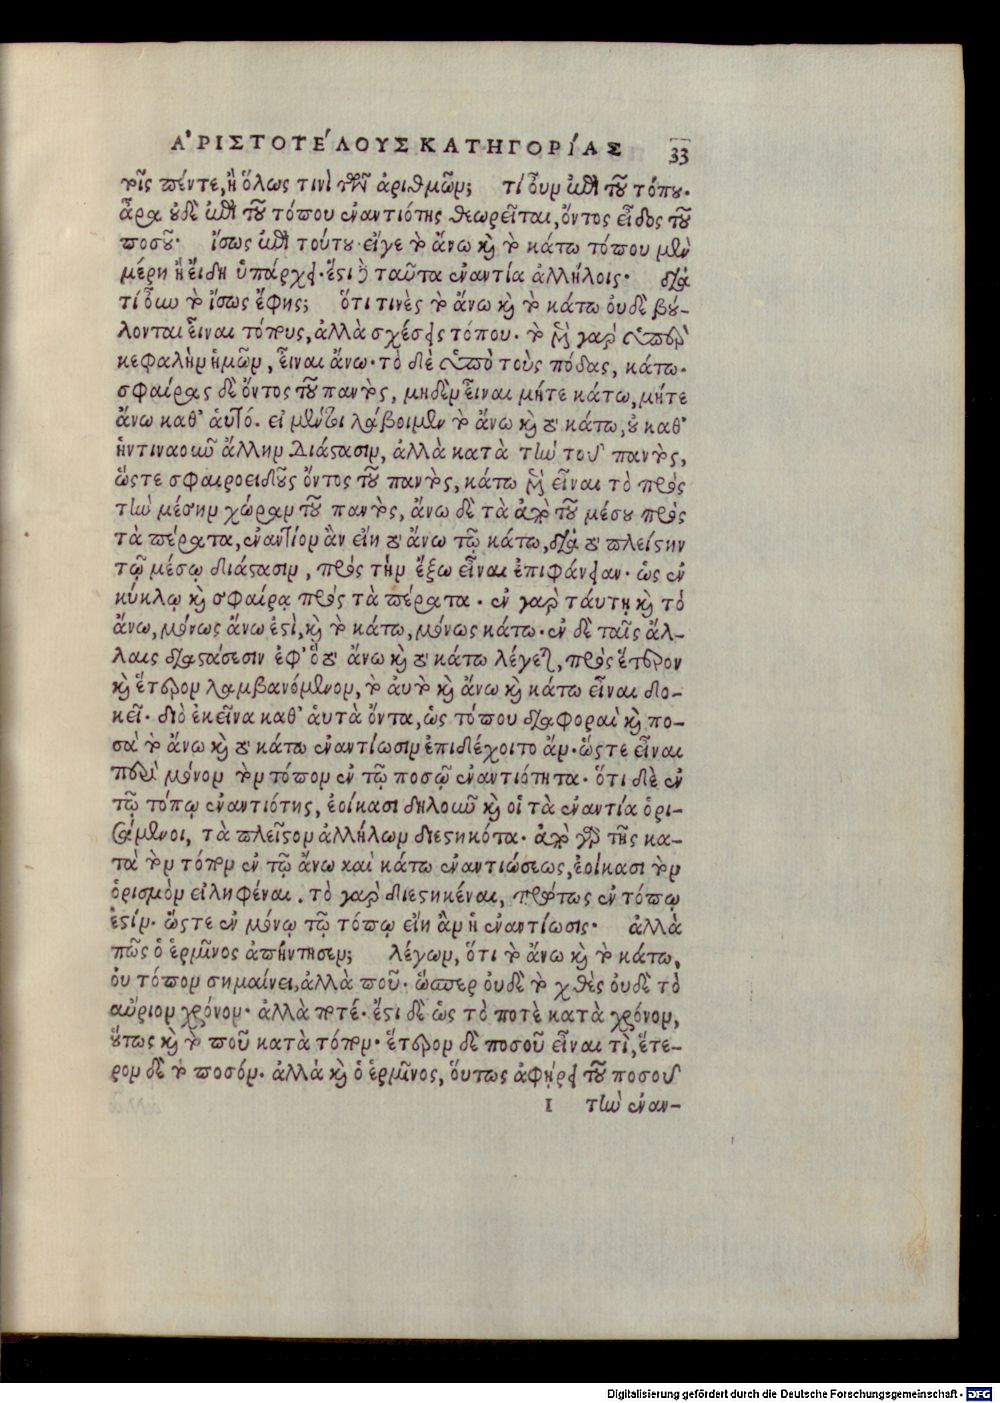 ἈΡΙΣΤΟΤΈΛΟΥΣ ΚΑΤΗΓΟΡΊΑΣ 33
τρῖς πέντε, ἢ ὅλως τινὶ τῶν ἀριθμῶν; τί οὖν ἐπὶ τοῦ τόπου·
ἆρα οὐδὲ ἐπὶ τοῦ τόπου ἐναντιότης θεωρεῖται, ὄντος εἶδος τοῦ
ποσοῦ· ἴσως ἐπὶ τούτου· εἴγε τὸ ἄνω καὶ τὸ κάτω τόπου μὲν
μέρη ἢ εἴδη ὑπάρχει· ἔστι δὲ ταῦτα ἐναντία ἀλλήλοις· διὰ
τί οὖν τὸ ἴσως ἔφης; ὅτι τινὲς τὸ ἄνω καὶ τὸ κάτω οὐδὲ βού-
λονται εἶναι τόπους, ἀλλὰ σχέσεις τόπου· τὸ μὲν γὰρ ὑπὲρ
κεφαλὴν ἡμῶν, εἶναι ἄνω· τὸ δὲ ὑπὸ τοὺς πόδας, κάτω·
σφαίρας δὲ ὄντος τοῦ παντὸς, μηδὲν εἶναι μήτε κάτω, μήτε
ἄνω καθ' αὑτό. εἰ μέντοι λάβοιμεν τὸ ἄνω καὶ τὸ κάτω, οὐ καθ'
ἡντιναοῦν ἄλλην διάστασιν, ἀλλὰ κατὰ τὴν τοῦ παντὸς,
ὥστε σφαιροειδοῦς ὄντος τοῦ παντὸς, κάτω μὲν εἶναι τὸ πρὸς
τὴν μέσην χώραν τοῦ παντὸς, ἄνω δὲ τὰ ἀπὸ τοῦ μέσου πρὸς
τὰ πέρατα, ἐναντίον ἂν εἴη τὸ ἄνω τῷ κάτω, διὰ τὸ πλείστην
τῷ μέσῳ διάστασιν, πρὸς τὴν ἔξω εἶναι ἐπιφάνειαν· ὡς ἐν
κύκλῳ καὶ σφαίρᾳ πρὸς τὰ πέρατα. ἐν γὰρ ταύτῃ καὶ τὸ
ἄνω, μόνως ἄνω ἐστὶ, καὶ τὸ κάτω, μόνως κάτω· ἐν δὲ ταῖς ἄλ-
λαις διαστάσεσιν ἐφ' ὃ τὸ ἄνω καὶ τὸ κάτω λέγεται, πρὸς ἕτερον
καὶ ἕτερον λαμβανόμενον, τὸ αὐτὸ καὶ ἄνω καὶ κάτω εἶναι δο-
κεῖ· διὸ ἐκεῖνα καθ' αὑτὰ ὄντα, ὡς τόπου διαφοραὶ καὶ πο-
σὰ τὸ ἄνω καὶ τὸ κάτω ἐναντίωσιν ἐπιδέχοιτο ἄν· ὥστε εἶναι
περὶ μόνον τὸν τόπον ἐν τῷ ποσῷ ἐναντιότητα· ὅτι δὲ ἐν
τῷ τόπῳ ἐναντιότης, ἐοίκασι δηλοῦν καὶ οἱ τὰ ἐναντία ὁρι-
σάμενοι, τὰ πλεῖστον ἀλλήλων διεστηκότα· ἀπὸ γὰρ τῆς κα-
τὰ τὸν τόπον ἐν τῷ ἄνω καὶ κάτω ἐναντιώσεως, ἐοίκασι τὸν
ὁρισμὸν εἰληφέναι. τὸ γὰρ διεστηκέναι, πρώτως ἐν τόπῳ
ἐστίν· ὥστε ἐν μόνῳ τῷ τόπῳ εἴη ἂν ἡ ἐναντίωσις· ἀλλὰ
πῶς ὁ ἑρμῖνος ἀπήντησεν; λέγων, ὅτι τὸ ἄνω καὶ τὸ κάτω,
οὐ τόπον σημαίνει, ἀλλὰ ποῦ· ὥσπερ οὐδὲ τὸ χθὲς οὐδὲ τὸ
αὔριον χρόνον· ἀλλὰ ποτέ· ἔστι δὲ ὡς τὸ ποτὲ κατὰ χρόνον,
οὕτως καὶ τὸ ποῦ κατὰ τόπον· ἕτερον δὲ ποσοῦ εἶναι τὶ, ἕτε-
ρον δὲ τὸ ποσόν· ἀλλὰ καὶ ὁ ἑρμῖνος, οὕτως ἀφῄρει τοῦ ποσοῦ
I τὴν ἐναν-
Digitalisierung gefördert durch die Deutsche Forschungsgemeinschaft - DFG